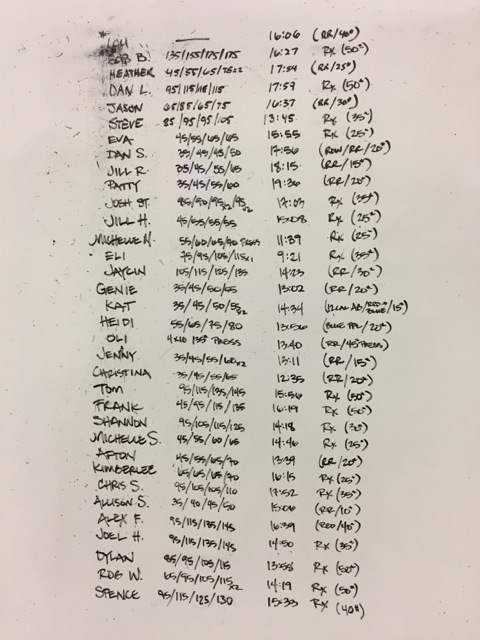 LOU 16:06 (RR/40#)
ROB B. 135/155/175/175 16:27 Rx (50#)
HEATHER 45/55/65/75x2 17:54 (RR/25#)
DAN L. 95/115/115/115 17:57 Rx (50#)
JASON 65/85/65/75 16:37 (RR/30#)
STEVE 85/95/95/105 13:45 Rx (35#)
EVA 45/55/65/65 15:55 Rx (25#)
DAN S. 35/45/45/50 17:56 (ROW/RR/20#)
JILL R. 35/45/55/65 18:15 (RR/15#)
PATTY 35/45/55/60 19:36 (RR/20#)
JOSH ST. 17:03 Rx (35#)
JILL H. 45/55/55/55 15:08 Rx (25#)
MICHELLE M. 55/60/65/90 PRESS 11:39 Rx (25#)
ELI 75/95/105/115x1 9:21 Rx (35#)
JAYLIN 105/115/125/135 14:23 (RR/30#)
GENIE 35/45/50/55 13:02 (RR/20#)
KAT 35/45/50/55x2 14:34 (12 CAL AB/RED+BLUE/15#)
HEIDI 55/65/75/80 13:56 (BLUE PPL/20#)
OLI 4x10 135# PRESS 13:40 (RR/45# PRESS)
JENNY 35/45/55/60x2 13:11 (RR/15#)
CHRISTINA 35/45/55/65 12:35 (RR/20#)
TOM 95/115/135/145 15:56 Rx (50#)
FRANK 45/95/115/135 16:19 Rx (50#)
SHANNON 95/105/115/125 14:18 Rx (30#)
MICHELLE S. 45/55/60/65 14:46 Rx (25#)
AFTON 45/55/65/70 13:39 (RR/20#)
KIMBERLEE 65/65/65/70 16:15 Rx (25#)
CHRIS S. 95/105/105/110 17:52 Rx (35#)
ALLISON S. 35/40/45/50 15:06 (RR/10#)
ALEX F. 95/115/135/145 16:39 (RED/40#)
JOEL H. 95/115/135/145 14:50 Rx (35#)
DYLAN 85/95/105/115 13:58 Rx (50#)
ROB W. 65/95/105/115x2 14:19 Rx (50#)
SPENCE 95/115/125/130 15:33 Rx (40#)